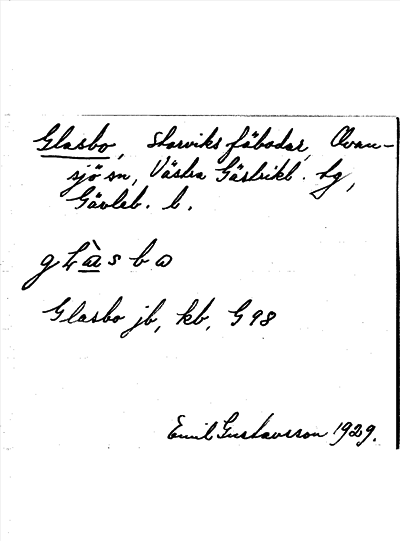 Glasbo, Storviks fäbodar, Ovan-
sjö sn, Västra Gästrikl. tg,
Gävleb. l.
gLàsbo
Glasbo jb, kb, G 98
Emil Gustavsson 1929.